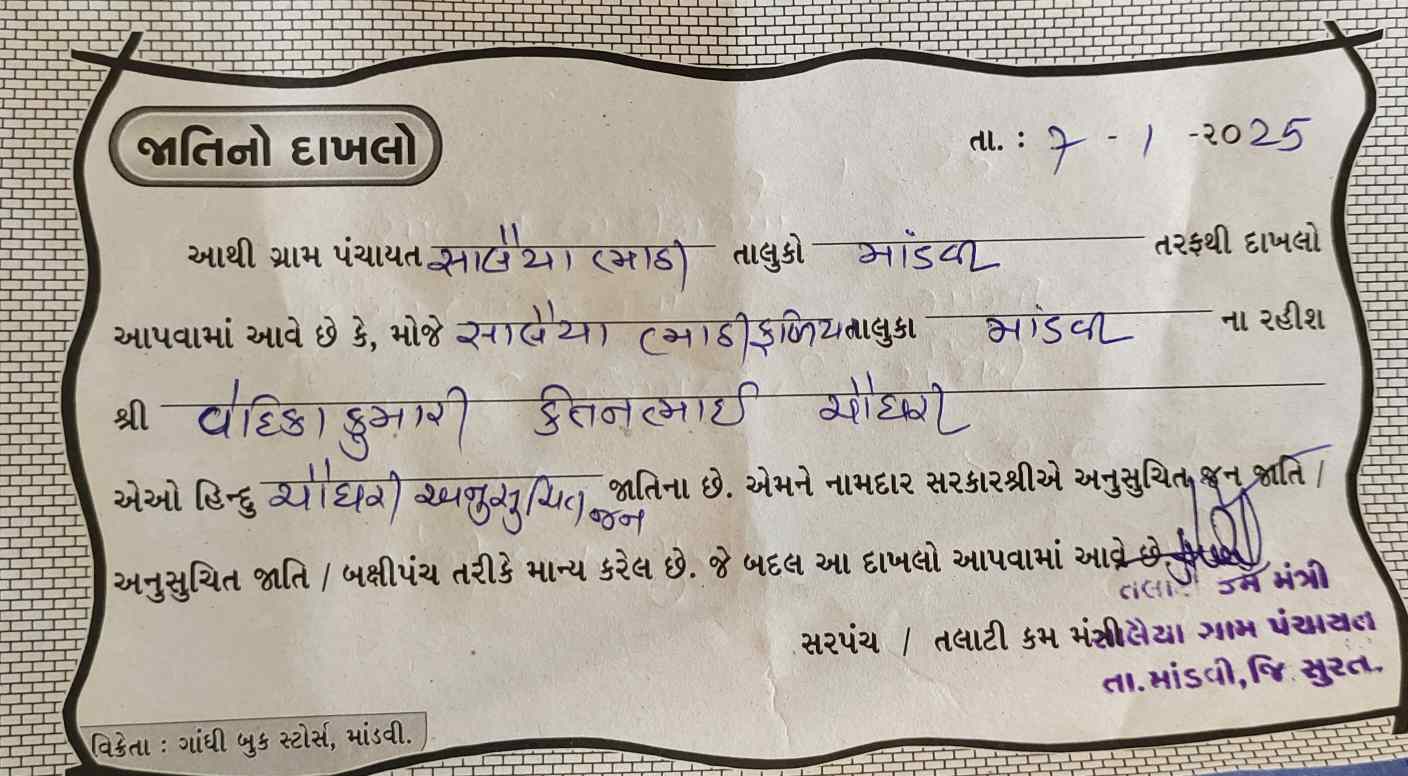 જાતિનો દાખલો
તા. : 7 - 1 -૨૦25
આથી ગ્રામ પંચાયત સાલૈયા (ભાઠી) તાલુકો માંડવી તરફથી દાખલો
આપવામાં આવે છે કે, મોજે સાલૈયા (ભાઠી ફળિયા તાલુકા માંડવી ના રહીશ
શ્રી વેદિકાકુમારી કેતનભાઈ ચૌધરી
એઓ હિન્દુ ચૌધરી અનુસુચિત જન જાતિના છે. એમને નામદાર સરકારશ્રીએ અનુસુચિત જન જાતિ /
અનુસુચિત જાતિ / બક્ષીપંચ તરીકે માન્ય કરેલ છે. જે બદલ આ દાખલો આપવામાં આવે છે.
તલાટી કમ મંત્રી
સરપંચ / તલાટી કમ મંત્રી
સાલૈયા ગ્રામ પંચાયત
તા.માંડવી, જિ. સુરત.
વિક્રેતા : ગાંધી બુક સ્ટોર્સ, માંડવી.